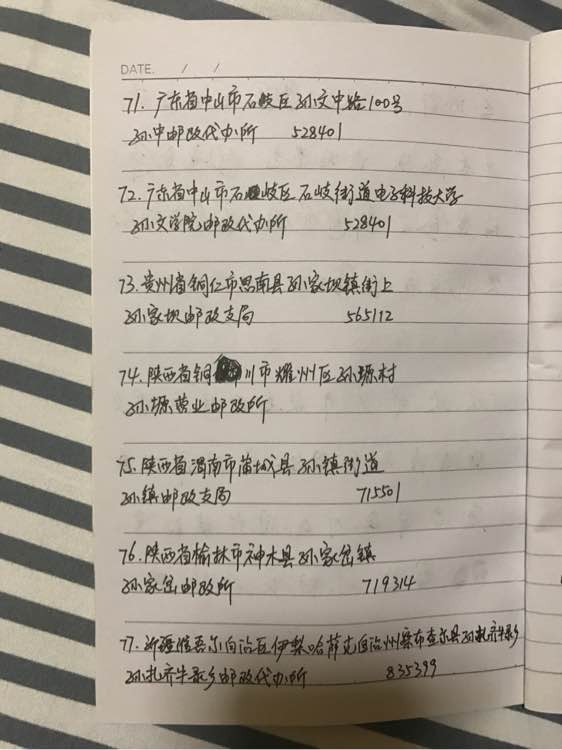 DATE. / /
71. 广东省中山市石岐区孙文中路100号
孙中邮政代办所 528401
72. 广东省中山市石岐区石岐街道电子科技大学
孙文学院邮政代办所 528401
73. 贵州省铜仁市思南县孙家坝镇街上
孙家坝邮政支局 565112
74. 陕西省铜川市耀州区孙塬村
孙塬营业邮政所
75. 陕西省渭南市蒲城县孙镇街道
孙镇邮政支局 715501
76. 陕西省榆林市神木县孙家岔镇
孙家岔邮政所 719314
77. 新疆维吾尔自治区伊犁哈萨克自治州察布查尔县孙扎齐牛录乡
孙扎齐牛录乡邮政代办所 835399